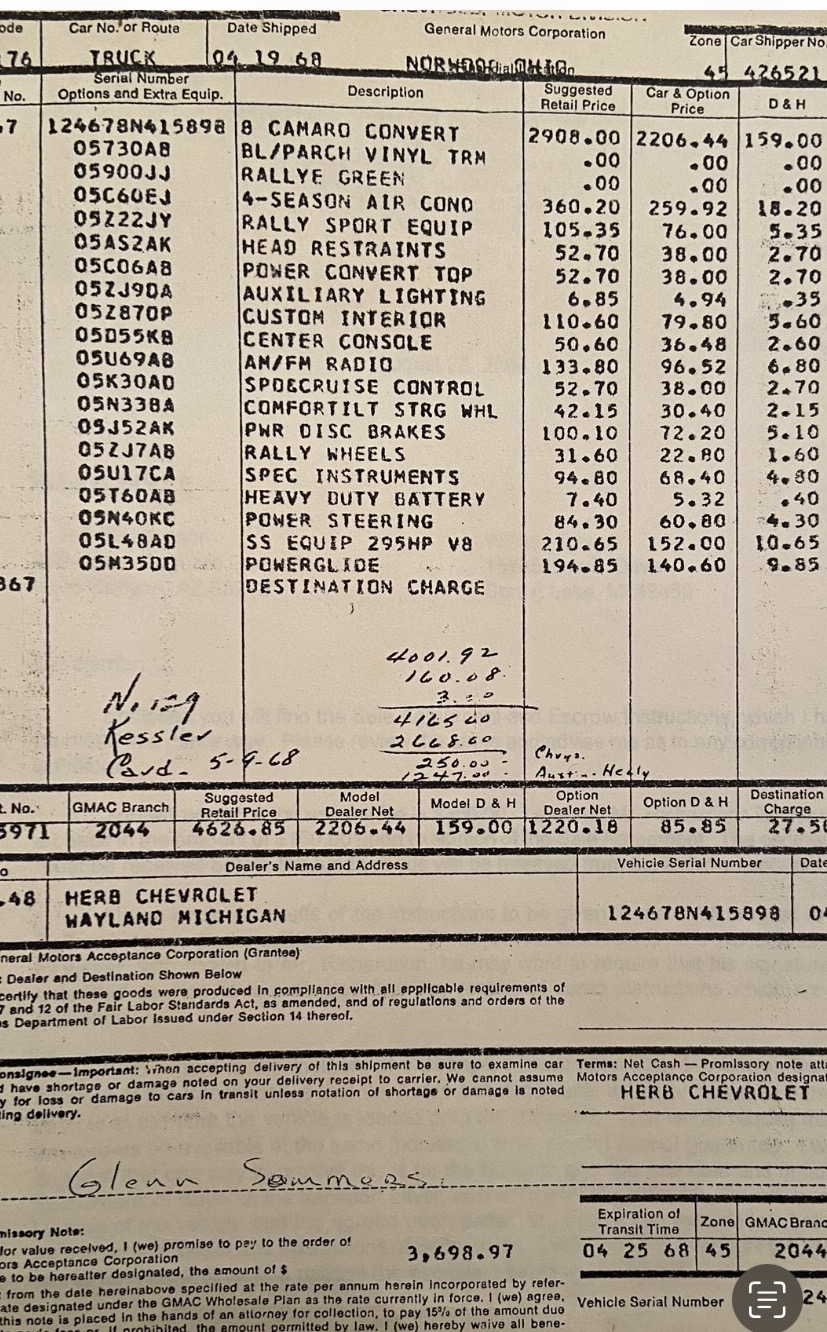 ode Car No. or Route Date Shipped General Motors Corporation Zone Car Shipper No.
76 TRUCK 04 19 68 NORWOOD OHIO 45 426521
No. Serial Number Options and Extra Equip. Description Suggested Retail Price Car & Option Price D & H
67 124678N415898 8 CAMARO CONVERT 2908.00 2206.44 159.00
05730AB BL/PARCH VINYL TRM .00 .00 .00
05900JJ RALLYE GREEN .00 .00 .00
05C60EJ 4-SEASON AIR COND 360.20 259.92 18.20
05Z22JY RALLY SPORT EQUIP 105.35 76.00 5.35
05AS2AK HEAD RESTRAINTS 52.70 38.00 2.70
05C06AB POWER CONVERT TOP 52.70 38.00 2.70
05ZJ9DA AUXILIARY LIGHTING 6.85 4.94 .35
05Z870P CUSTOM INTERIOR 110.60 79.80 5.60
05D55KB CENTER CONSOLE 50.60 36.48 2.60
05U69AB AM/FM RADIO 133.80 96.52 6.80
05K30AD SPD&CRUISE CONTROL 52.70 38.00 2.70
05N33BA COMFORTILT STRG WHL 42.15 30.40 2.15
05J52AK PWR DISC BRAKES 100.10 72.20 5.10
05ZJ7AB RALLY WHEELS 31.60 22.80 1.60
05U17CA SPEC INSTRUMENTS 94.80 68.40 4.80
05T60AB HEAVY DUTY BATTERY 7.40 5.32 .40
05N40KC POWER STEERING 84.30 60.80 4.30
05L48AD SS EQUIP 295HP V8 210.65 152.00 10.65
05M35DD POWERGLIDE 194.85 140.60 9.85
867 DESTINATION CHARGE
4001.92
160.08
Kessler
Card. 5-9-68
2668.60
250.00 Chrys.
1247.00 Austin-Healy
t. No. GMAC Branch Suggested Retail Price Model Dealer Net Model D & H Option Dealer Net Option D & H Destination Charge
5971 2044 4626.85 2206.44 159.00 1220.18 85.85 27.50
o Dealer's Name and Address Vehicle Serial Number Date
.48 HERB CHEVROLET
WAYLAND MICHIGAN 124678N415898 04
neral Motors Acceptance Corporation (Grantee)
: Dealer and Destination Shown Below
certify that these goods were produced in compliance with all applicable requirements of
7 and 12 of the Fair Labor Standards Act, as amended, and of regulations and orders of the
s Department of Labor issued under Section 14 thereof.
onsignee—Important: When accepting delivery of this shipment be sure to examine car
d have shortage or damage noted on your delivery receipt to carrier. We cannot assume
y for loss or damage to cars in transit unless notation of shortage or damage is noted
ing delivery.
Terms: Net Cash — Promissory note atta
Motors Acceptance Corporation designat
HERB CHEVROLET
Glenn Sommers
missory Note:
for value received, I (we) promise to pay to the order of
ors Acceptance Corporation
e to be hereafter designated, the amount of $ 3,698.97
Expiration of Transit Time Zone GMAC Branc
04 25 68 45 2044
from the date hereinabove specified at the rate per annum herein incorporated by refer-
ate designated under the GMAC Wholesale Plan as the rate currently in force. I (we) agree,
this note is placed in the hands of an attorney for collection, to pay 15% of the amount due
or, if prohibited, the amount permitted by law. I (we) hereby waive all bene-
Vehicle Serial Number 24